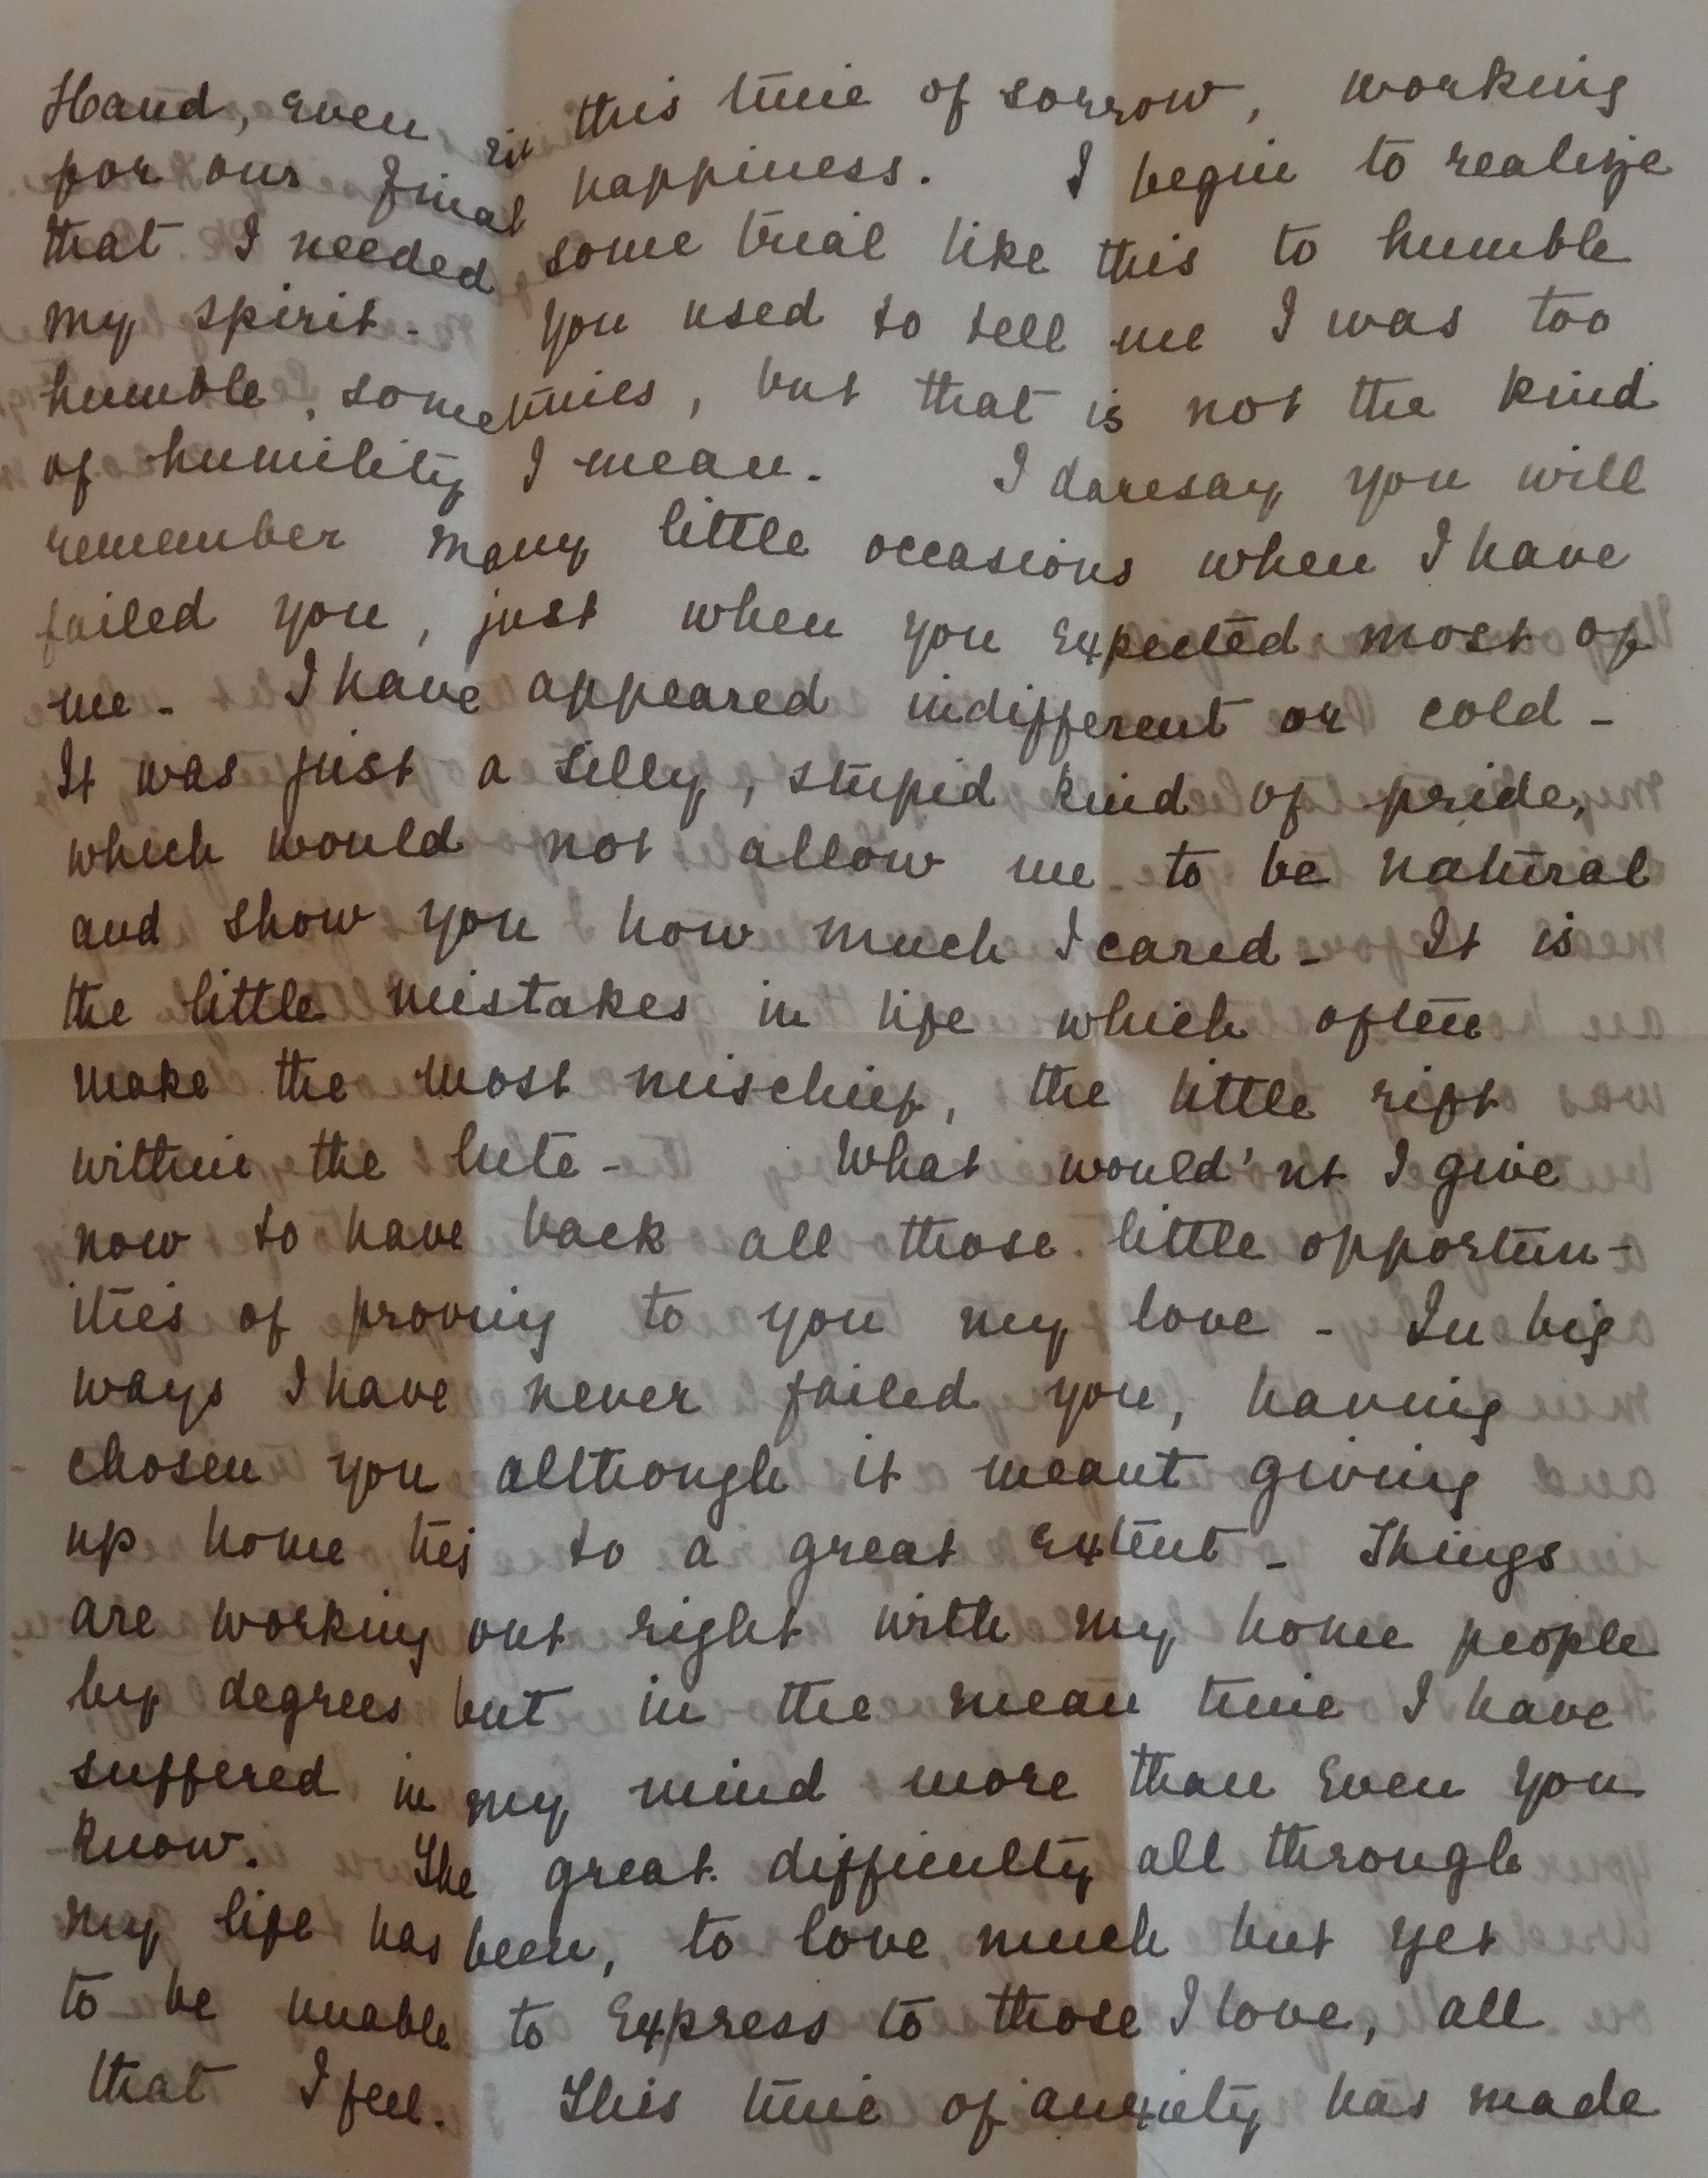 Hand, even in this time of sorrow, working
for our final happiness. I begin to realize
that I needed some trial like this to humble
my spirit - You used to tell me I was too
humble, sometimes, but that is not the kind
of humility I mean. I daresay you will
remember many little occasions when I have
failed you, just when you expected most of
me - I have appeared indifferent or cold -
It was just a silly, stupid kind of pride,
which would not allow me to be natural
and show you how much I cared - It is
the little mistakes in life which often
make the most mischief, the little rift
within the lute - What would'nt I give
now to have back all those little opportun-
ities of proving to you my love - In big
ways I have never failed you, having
chosen you although it meant giving
up home ties to a great extent - Things
are working out right with my home people
by degrees but in the mean time I have
suffered in my mind more than even you
know. The great difficulty all through
my life has been, to love much but yet
to be unable to express to those I love, all
that I feel. This time of anxiety has made